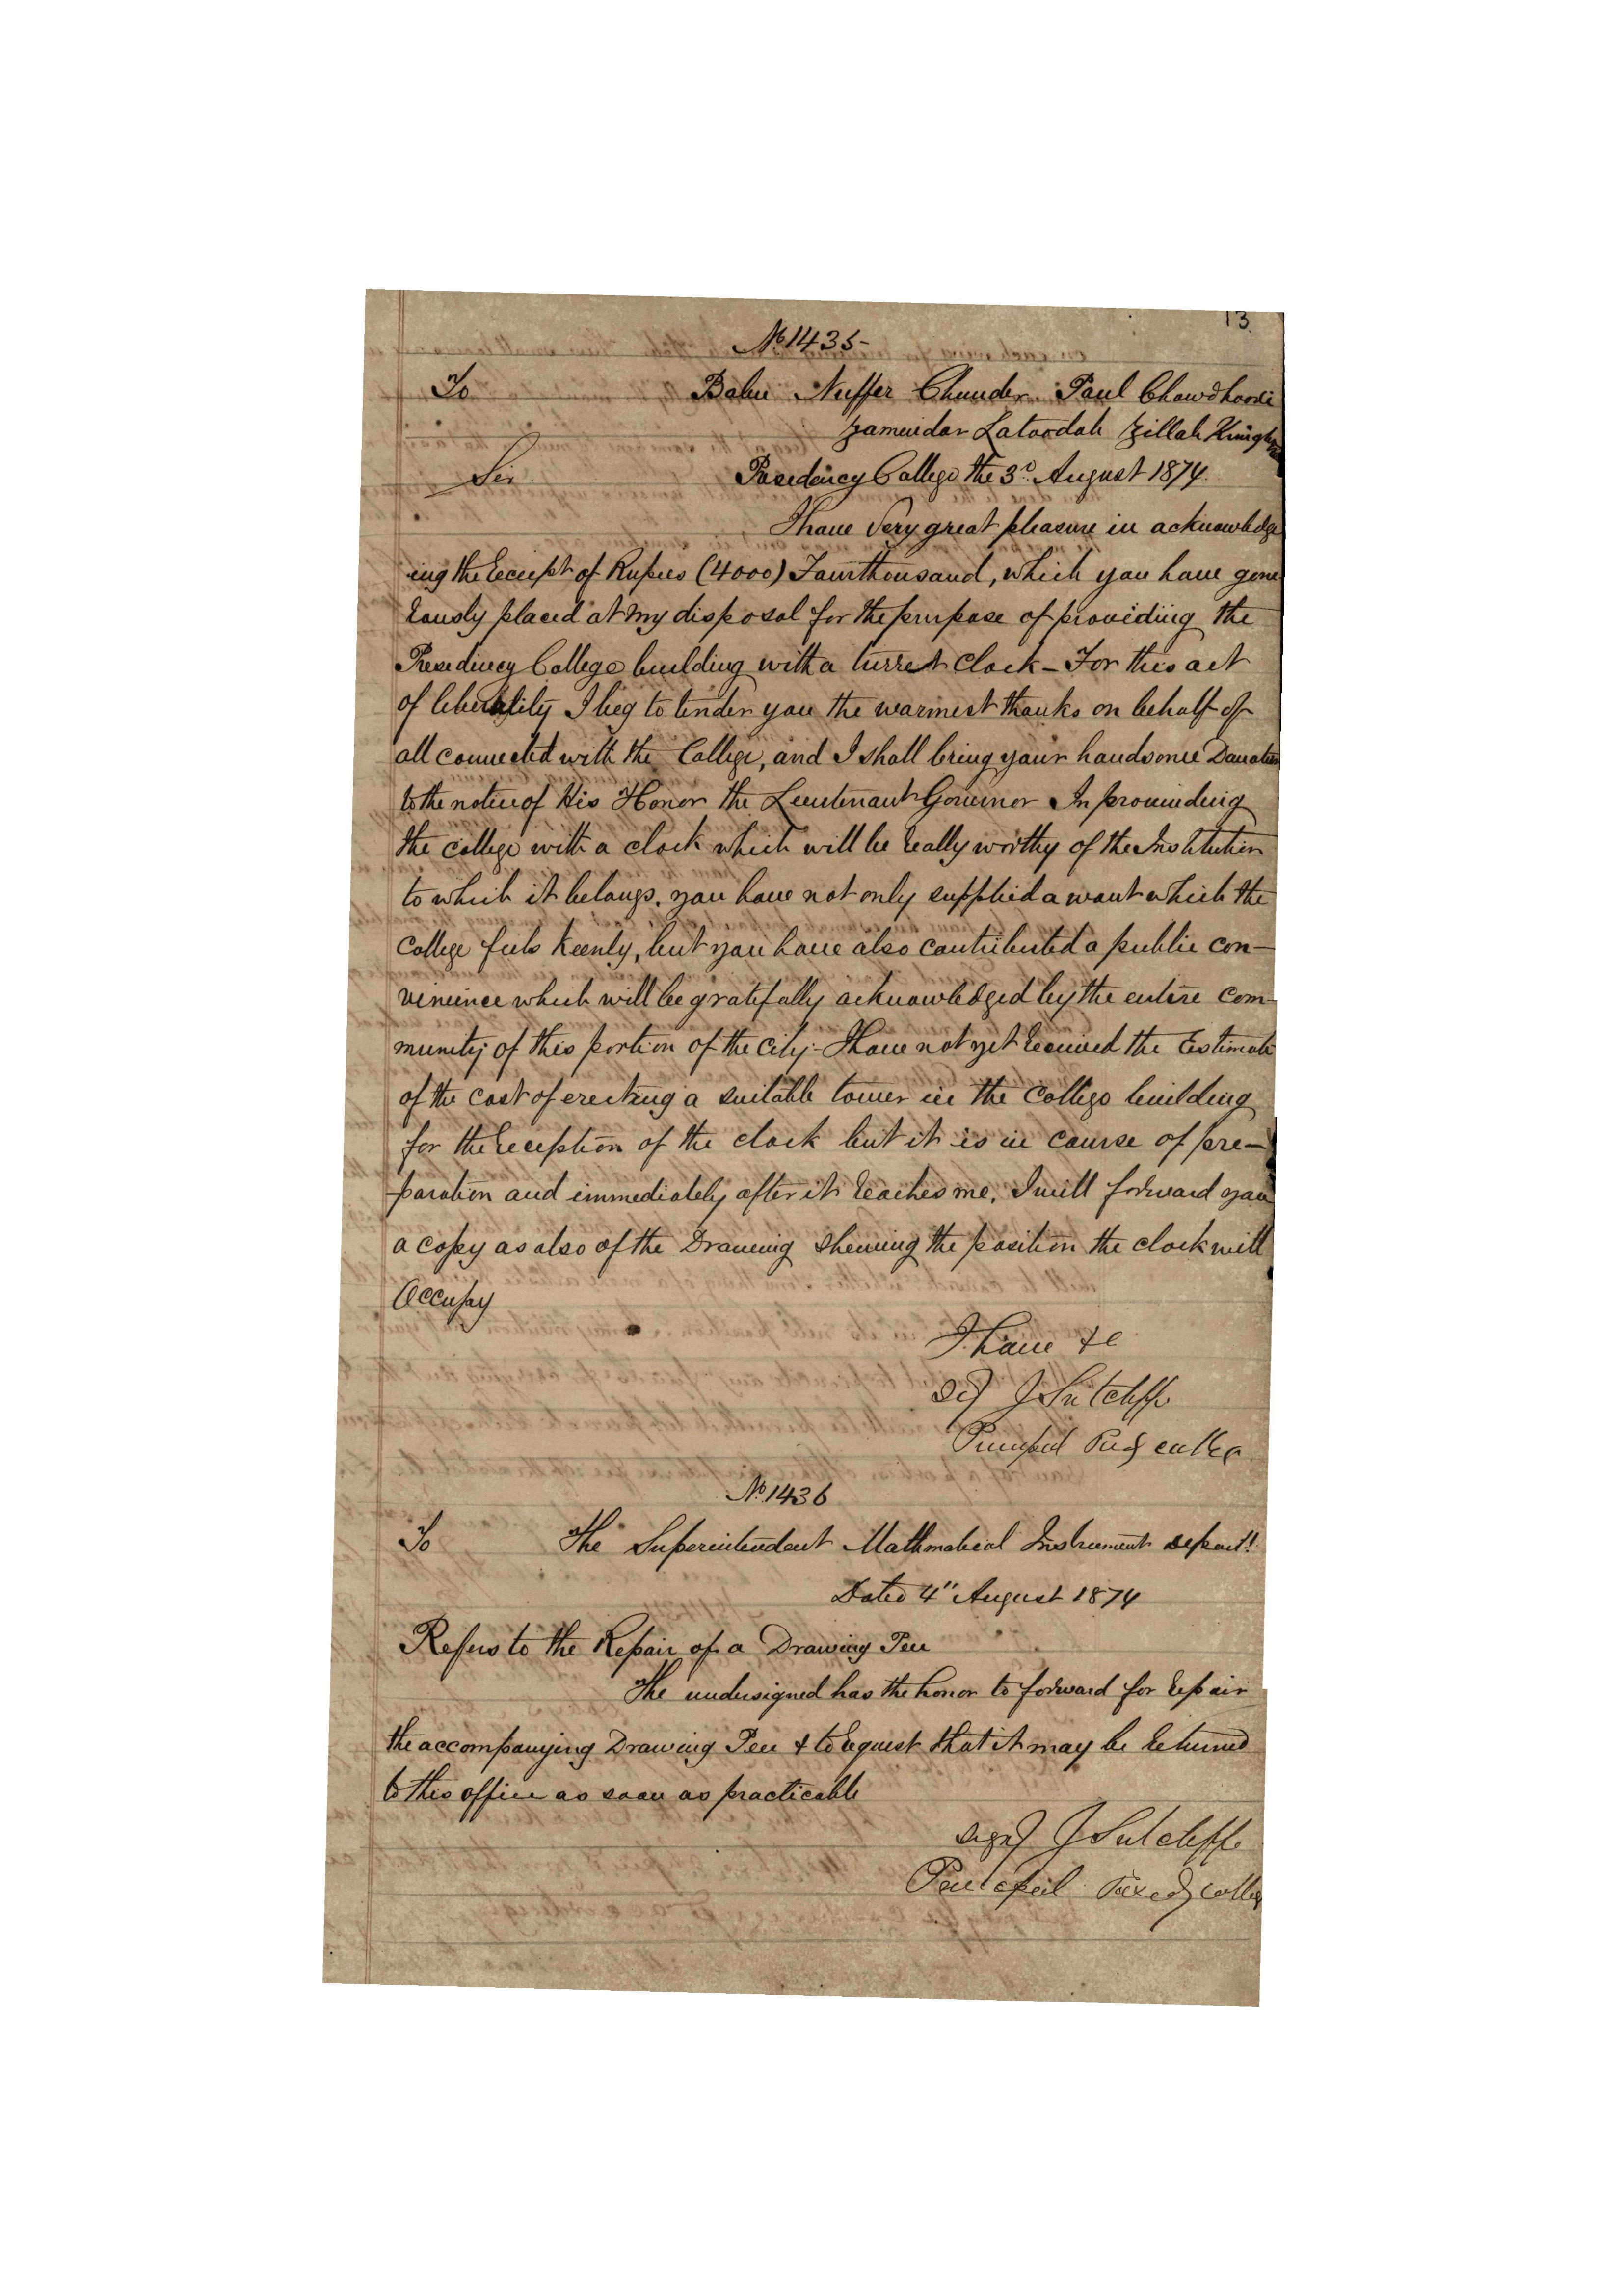 13
No 1435-
To Babu Nuffer Chunder Paul Chowdhoori
Zamindar Latoodah Zillah
Sir Presedency College the 3d August 1874.
I have Very great pleasure in acknowledg
ing the receipt of Rupees (4000) Four thousand, which you have gene
rously placed at my disposal for the purpose of providing the
Presedincy College building with a turret clock - For this act
of liberality I beg to tender you the warmest thanks on behalf of
all connected with the College, and I shall bring your handsome Donation
to the notice of His Honor the Leuutenant Governor In prouinding
the college with a clock which will be really worthy of the Institution
to which it belongs. you have not only supplied a want which the
College feels keenly, but you have also contributed a public con-
venience which will be gratefully acknowledged by the entire com-
munity of this portion of the city - I have not yet received the Estimate
of the cost of erecting a suitable tower in the College building
for the reception of the clock but it is in course of pre-
-paration and immediately after it reaches me, I will forward you
a copy as also of the Drawing shewing the position the clock will
Occupy
I have &c
Sd J Sutcliffe
Principal Presy College
No. 1436
To The Superintendent Mathmatical Instrument depart!
Dated 4" August 1874
Refers to the Repair of a Drawing Pen
The undersigned has the honor to forward for repair
the accompanying Drawing Pen & to request that it may be returned
to this office as soon as practicable
Signd J Sutcliffe
Principal Presedy College